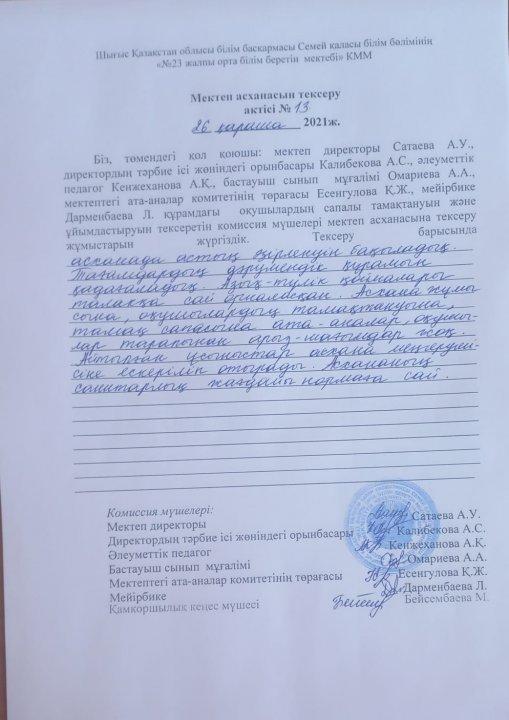 Шығыс Қазақстан облысы білім басқармасы Семей қаласы білім бөлімінің
«№23 жалпы орта білім беретін мектебі» КММ
Мектеп асханасын тексеру
актісі № 13
26 қараша 2021ж.
Біз, төмендегі қол қоюшы: мектеп директоры Сатаева А.У.,
директордың тәрбие ісі жөніндегі орынбасары Калибекова А.С., әлеуметтік
педагог Кенжеханова А.Қ., бастауыш сынып мұғалімі Омариева А.А.,
мектептегі ата-аналар комитетінің төрағасы Есенгулова Қ.Ж., мейірбике
Дарменбаева Л. құрамдағы оқушылардың сапалы тамақтануын және
ұйымдастыруын тексеретін комиссия мүшелері мектеп асханасына тексеру
жұмыстарын жүргіздік. Тексеру барысында
асханада астың әзірленуін бақыладық.
Тағамдардың дәрумендік құрамын
қадағаладық. Азық-түлік қоймалары
талапқа сай орналасқан. Асхана жұмы
сына, оқушылардың тамақтануына,
тамақ сапасына ата-аналар, оқушы-
лар тарапынан арыз-шағымдар жоқ.
Айтылған ұсыныстар асхана меңгеруші-
сіне ескеріліп отырады. Асхананың
санитарлық жағдайы нормаға сай.
Комиссия мүшелері:
Мектеп директоры Сатаева А.У.
Директордың тәрбие ісі жөніндегі орынбасары Калибекова А.С.
Әлеуметтік педагог Кенжеханова А.Қ.
Бастауыш сынып мұғалімі Омариева А.А.
Мектептегі ата-аналар комитетінің төрағасы Есенгулова Қ.Ж.
Мейірбике Дарменбаева Л.
Қамқоршылық кеңес мүшесі Бейсембаева М.